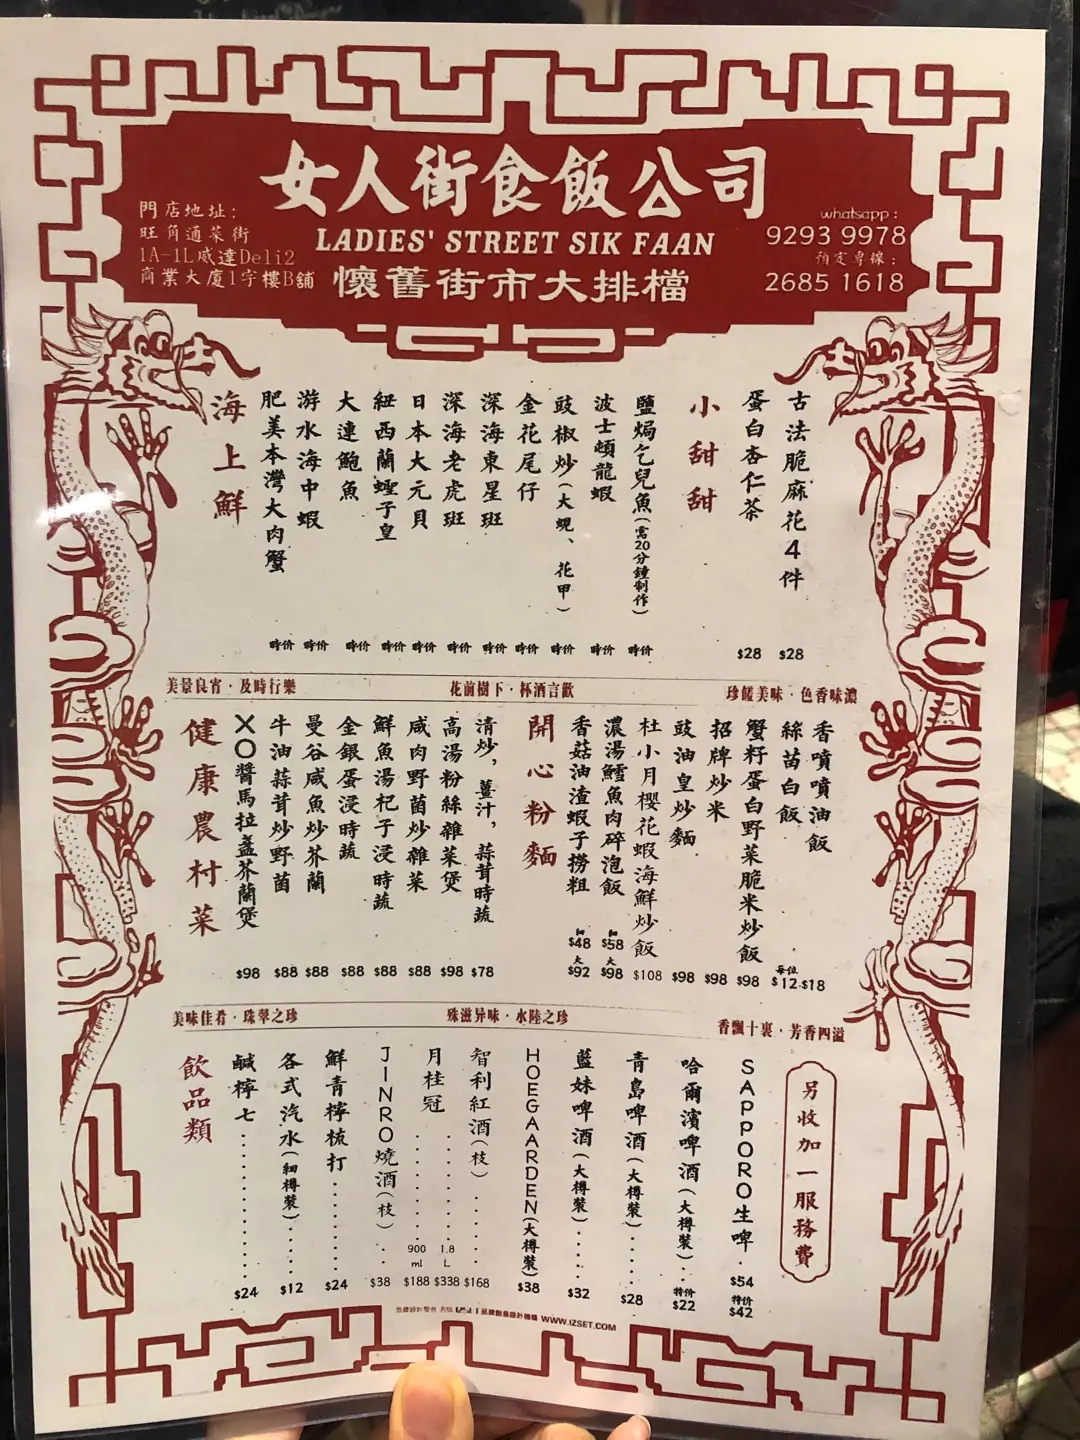 女人街食飯公司
LADIES' STREET SIK FAAN
懷舊街市大排檔
門店地址：
旺角通菜街
1A-1L威達Deli2
商業大廈1字樓B舖
whatsapp：
9293 9978
預定專線：
2685 1618
海上鮮
肥美本灣大肉蟹 時价
游水海中蝦 時价
大連鮑魚 時价
紐西蘭蟶子皇 時价
日本大元貝 時价
深海老虎班 時价
深海東星班 時价
金花尾仔 時价
豉椒炒（大蜆、花甲） 時价
波士頓龍蝦 時价
鹽焗乞兒魚（需20分鐘制作） 時价
小甜甜
蛋白杏仁茶 $28
古法脆麻花4件 $28
美景良宵·及時行樂
花前樹下·杯酒言歡
珍饈美味·色香味濃
健康農村菜
XO醬馬拉盞芥蘭煲 $98
牛油蒜茸炒野菌 $88
曼谷咸魚炒芥蘭 $88
金銀蛋浸時蔬 $88
鮮魚湯杞子浸時蔬 $88
咸肉野菌炒雜菜 $88
高湯粉絲雜菜煲 $98
清炒，薑汁，蒜茸時蔬 $78
開心粉麵
香菇油渣蝦子撈粗 $48 大 $92
濃湯鱈魚肉碎泡飯 $58 大 $98
杜小月櫻花蝦海鮮炒飯 $108
豉油皇炒麵 $98
招牌炒米 $98
蟹籽蛋白野菜脆米炒飯 $98
絲苗白飯 每位 $12
香噴噴油飯 $18
美味佳肴·珠翠之珍
殊滋异味·水陸之珍
香飄十裏·芳香四溢
飲品類
鹹檸七 $24
各式汽水（細樽裝） $12
鮮青檸梳打 $24
JINRO燒酒（枝） $38
月桂冠 900ml $188 1.8L $338
智利紅酒（枝） $168
HOEGAARDEN（大樽裝） $38
藍妹啤酒（大樽裝） $32
青島啤酒（大樽裝） $28
哈爾濱啤酒（大樽裝） 特价 $22
SAPPORO生啤 $54 特价 $42
另收加一服務費
WWW.IZSET.COM